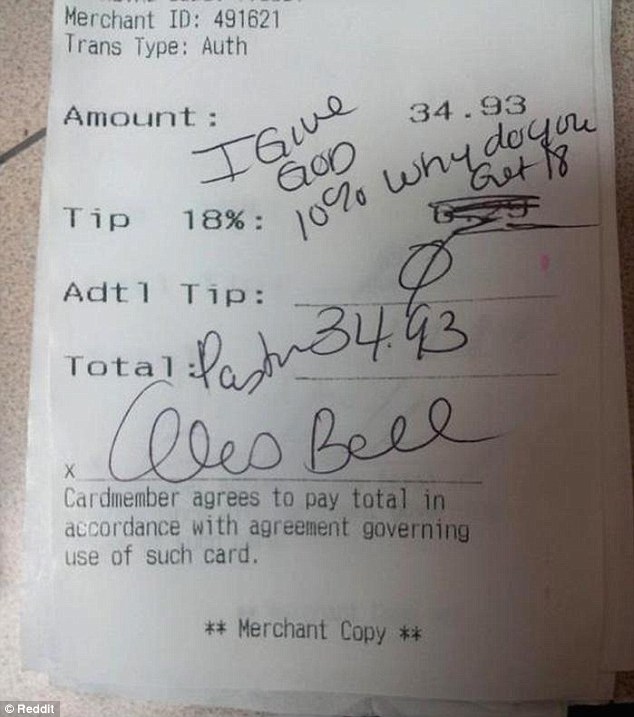 Merchant ID: 491621
Trans Type: Auth
Amount: 34.93
I Give
GOD
10% Why do you
Get 18
Tip 18%:
Adtl Tip:
Total: Pastor 34.93
x Alois Bell
Cardmember agrees to pay total in
accordance with agreement governing
use of such card.
** Merchant Copy **
© Reddit